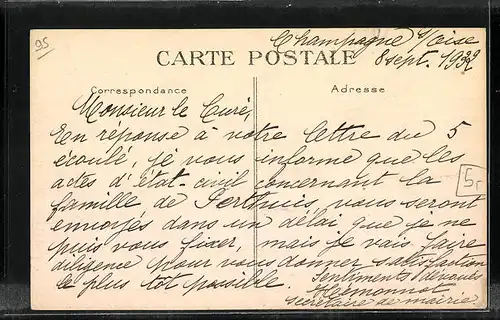 95
Champagne s/Oise
CARTE POSTALE 8 sept. 1932
Correspondance Adresse
Monsieur le Curé,
En réponse à votre lettre du 5
écoulé, je vous informe que les
actes d'état-civil concernant la
famille de Perthuis, vous seront
envoyés dans un délai que je ne
puis vous fixer, mais je vais faire
diligence pour vous donner satisfaction
le plus tôt possible. Sentiments dévoués
Hémonnot
secrétaire de mairie